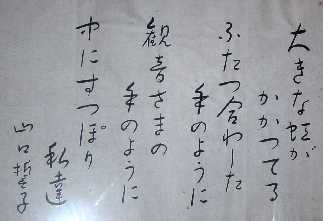 大きな虹が
かかってる
ふたつ合わした
手のように
観音さまの
手のように
中にすっぽり
私達
山口哲子